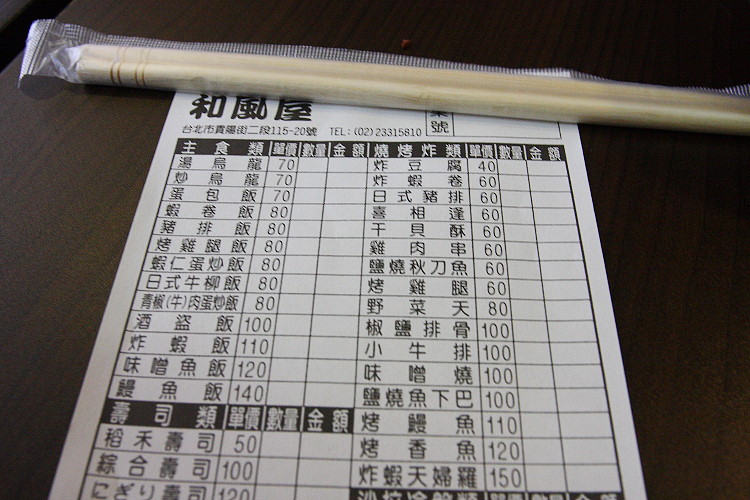 和風屋
號
台北市貴陽街二段115-20號 TEL:(02)23315810
主食類 單價 數量 金額
湯烏龍 70
炒烏龍 70
蛋包飯 70
蝦卷飯 80
豬排飯 80
烤雞腿飯 80
蝦仁蛋炒飯 80
日式牛柳飯 80
青椒(牛)肉蛋炒飯 80
酒盜飯 100
炸蝦飯 110
味噌魚飯 120
鰻魚飯 140
壽司類 單價 數量 金額
稻禾壽司 50
綜合壽司 100
にぎり壽司 120
燒烤炸類 單價 數量 金額
炸豆腐 40
炸蝦卷 60
日式豬排 60
喜相逢 60
干貝酥 60
雞肉串 60
鹽燒秋刀魚 60
烤雞腿 60
野菜天 80
椒鹽排骨 100
小牛排 100
味噌燒 100
鹽燒魚下巴 100
烤鰻魚 110
烤香魚 120
炸蝦天婦羅 150
沙拉冷盤類 單價 數量 金額